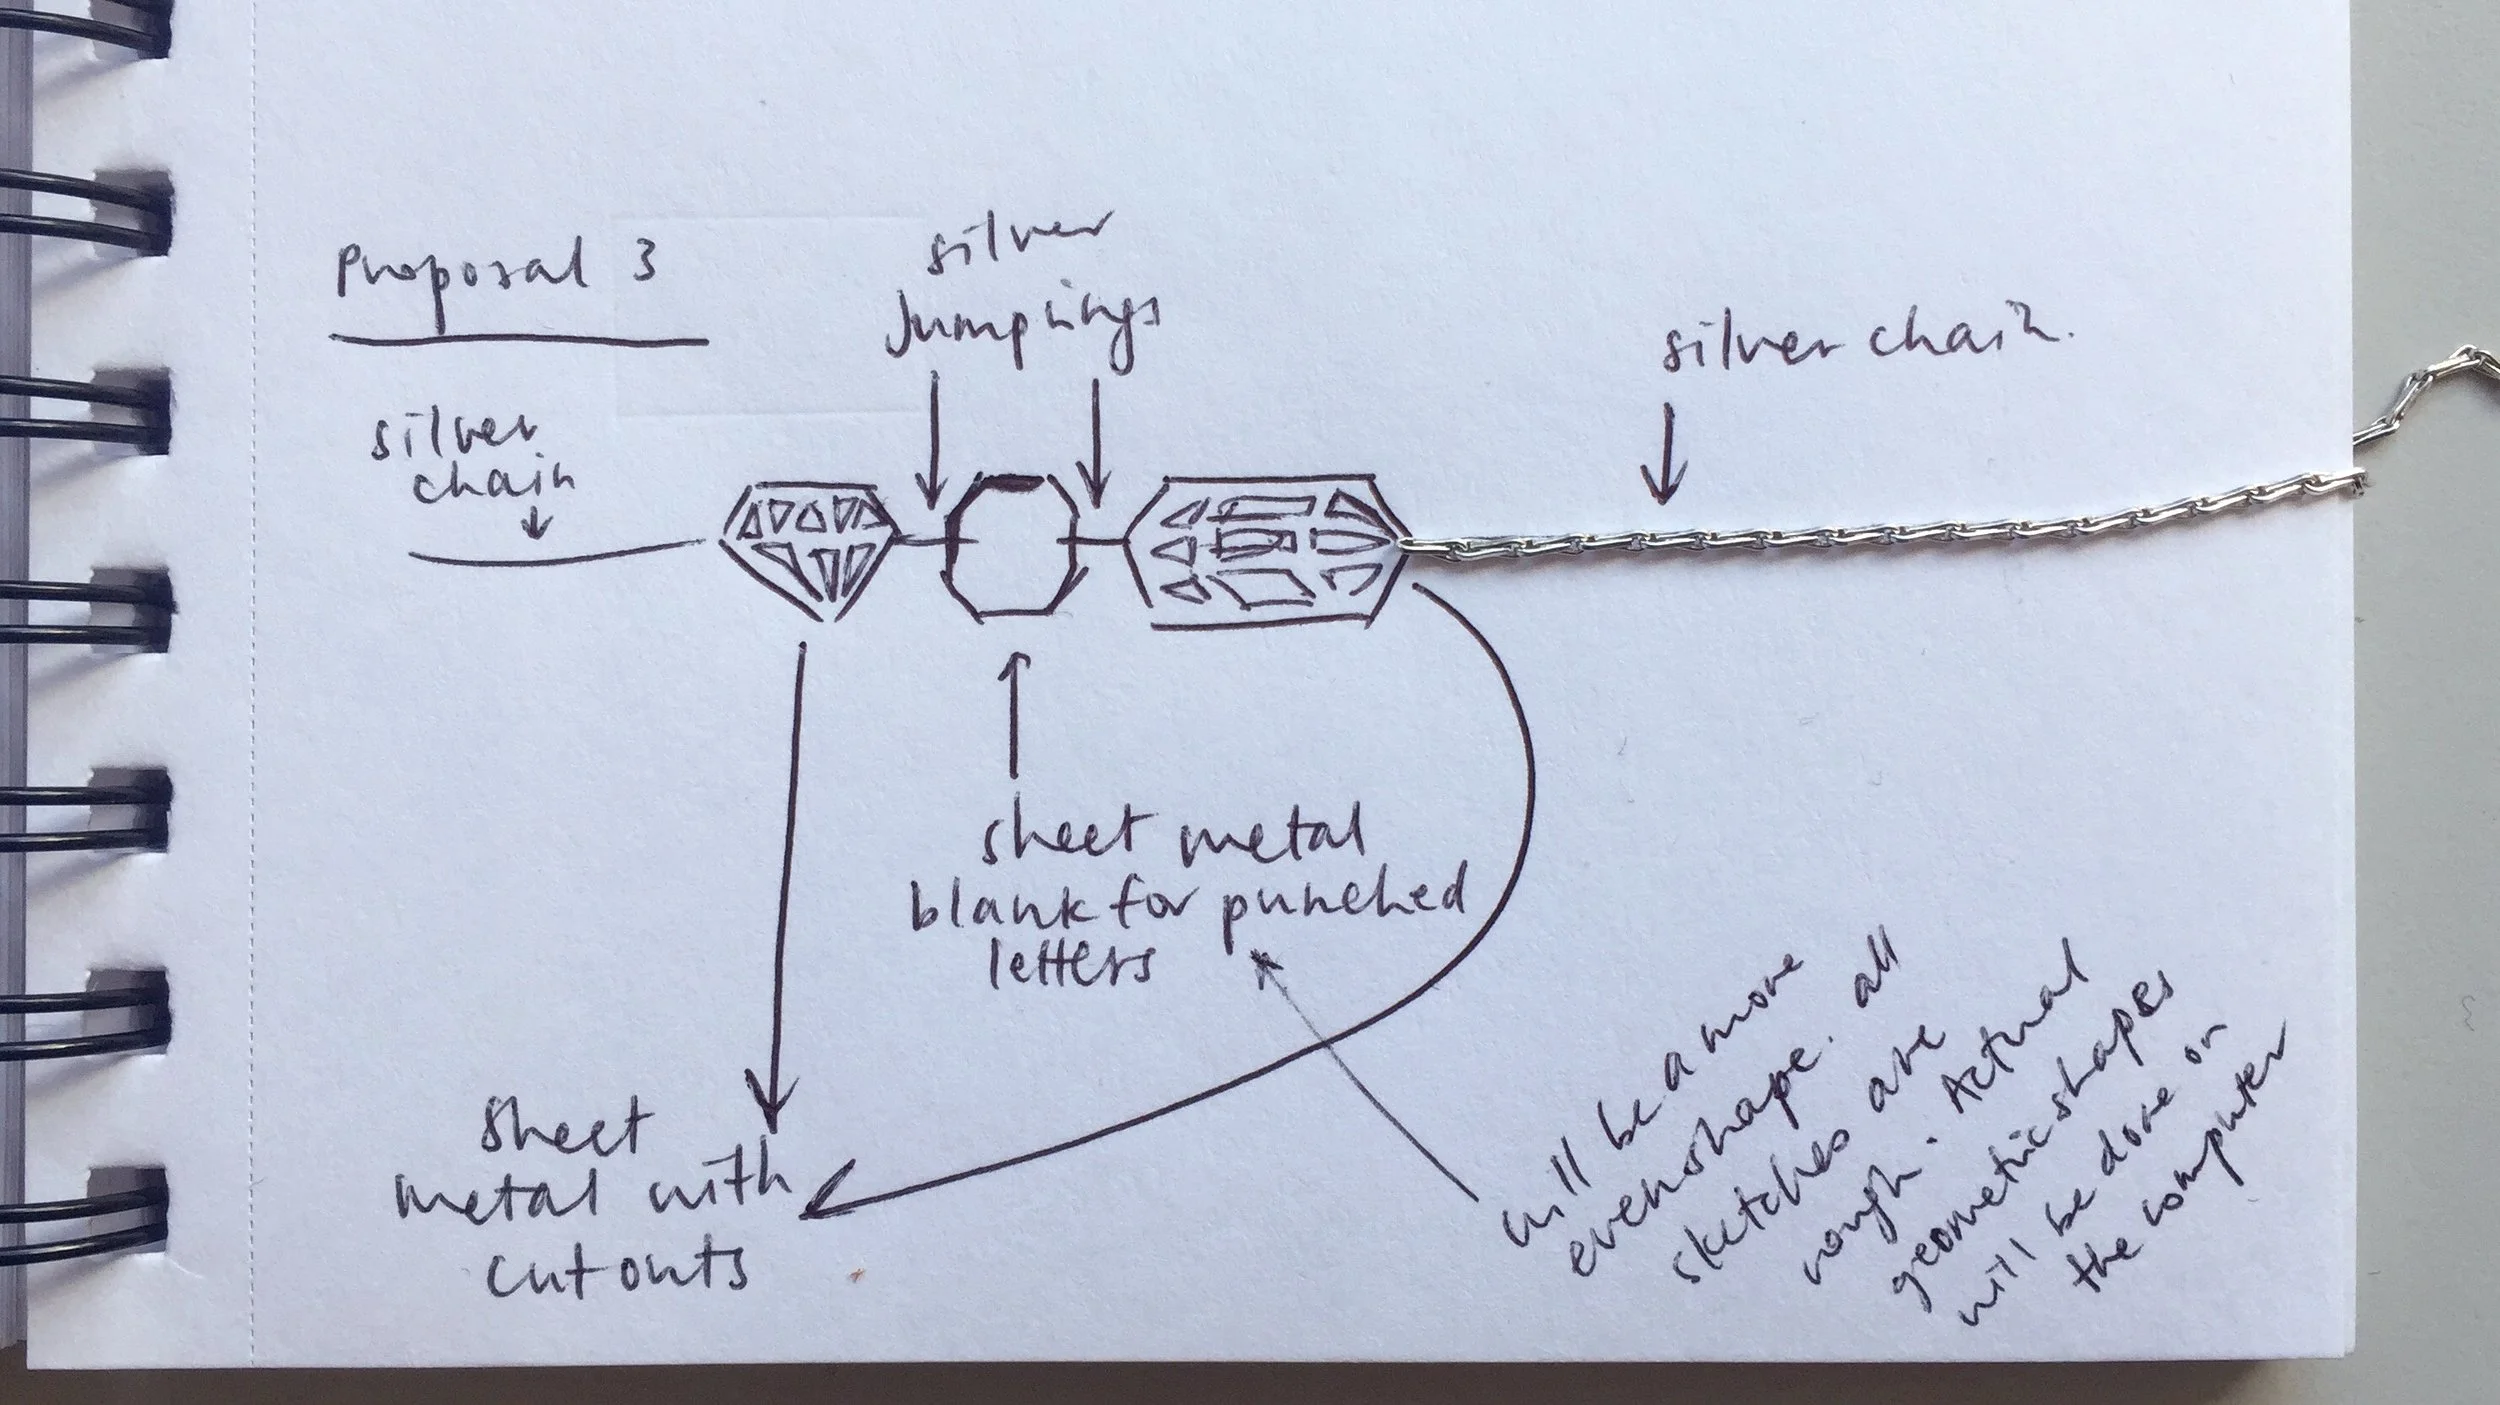 Proposal 3
silver
Jumprings
silver chain.
silver
chain
sheet metal
blank for punched
letters
sheet
metal with
cutouts
will be a more
even shape. all
sketches are
rough. Actual
geometric shapes
will be done on
the computer